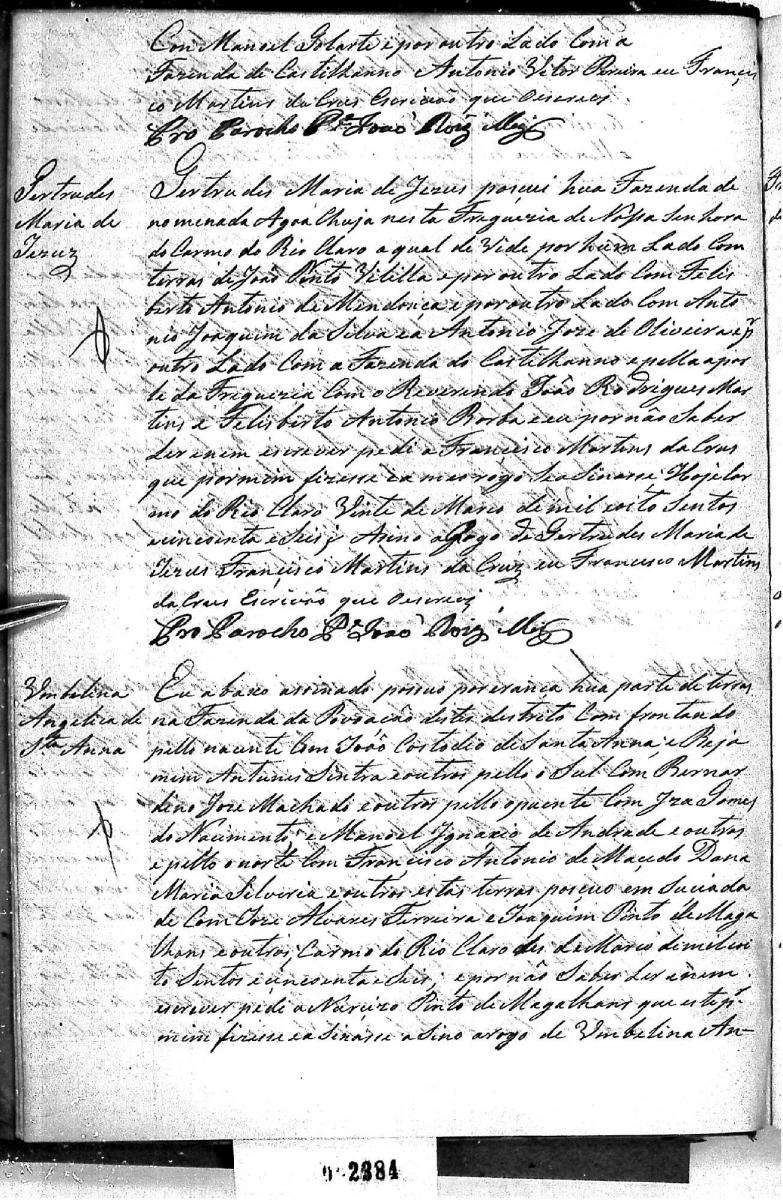 Com Manoel Golarte e por outro Lado Com a
Fazenda de Castilhanno Antonio Vitor Pereira eu Françis
co Martins da Crus Escrivão que Oescrevi
Pro Parocho Pe João Roiz Mez
Gertrudes
Maria de
Jezuz
Gertrudes Maria de Jezus posui hua Fazenda de
nomenada Agoa Chuja nesta Freguezia de Nossa Senhora
do Carmo do Rio Claro a qual de Vide por hum Lado Com
terras de João Pinto Vilella e por outro Lado Com Felis
berto Antonio de Mendonca e por outro Lado Com Anto
nio Joaquim da Silva e a Antonio Joze de Oliveira e pr
outro Lado Com a Fazenda do Castilhanno e pella a por
te da Freguezia Com o Reverendo João Rodrigues Mar
tins e Felisberto Antonio Borba e eu por não Saber
Ler e nem escrever pedi a Francisco Martins da Crus
que por mim fizesse e a meo rogo Se aSinasse Hoje Car
mo do Rio Claro Vinte de Marco de mil e oito Sentos
e cincoenta e Seis Asino a Rogo de Gertrudes Maria de
Jezus Françisco Martins da Cruz eu Francisco Martins
da Crus Escrivão que Oescrevi
Pro Parocho Pe João Roiz Mez
Umbelina
Angelica de
Sta Anna
Eu a baxo assinado posuo por erança hua parte de terras
na Fazenda da Povoacão destes destrito Com frontando
pello nacente Com João Custodio de Santa Anna, e Beja
mim Antunis Sintra e outros pello o Sul Com Bernar
dino Joze Machado e outros pello o puente Com Iza Gomes
do Nacimento, e Manoel Ignacio de Andrade e outros
e pello o norte Com Francisco Antonio de Macedo Dona
Maria Silveria e outros estas terras posuo em Suciada
de Com Joze Alvares Ferreira e Joaquim Pinto de Maga
lhans e outros, Carmo do Rio Claro des de Marco de mil e oi
to Sentos e cincoenta e Seis, e por não Saber Ler e nem
escrever pedi a Narcizo Pinto de Magalhans que este pr
mim fizesse e a Sinasse a Sino a rogo de Umbelina An-
2384